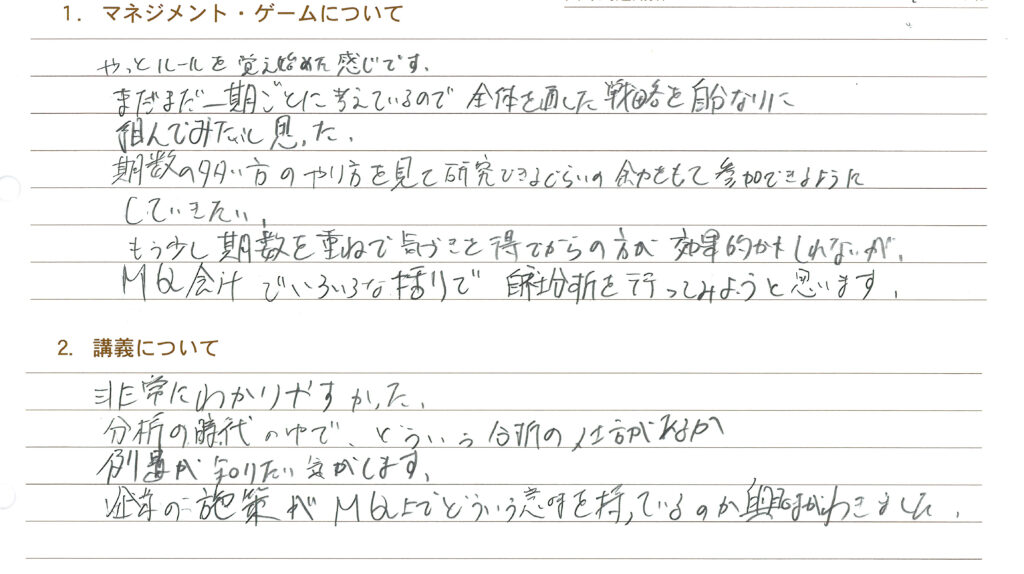 1. マネジメント・ゲームについて
やっとルールを覚え始めた感じです。
まだまだ一期ごとに考えているので全体を通した戦略を自分なりに
組んでみたいと思った。
期数の多い方のやり方を見て研究できるぐらいの余力をもて参加できるように
していきたい。
もう少し期数を重ねて気づきを得てからの方が効果的かもしれないが、
MQ会計でいろいろな括りで自社分析を行ってみようと思います。
2. 講義について
非常にわかりやすかった。
分析の時代の中で、どういう分析の仕方があるか
例が知りたい気がします。
企業の施策がMQ上でどういう意味を持っているのか興味がわきました。